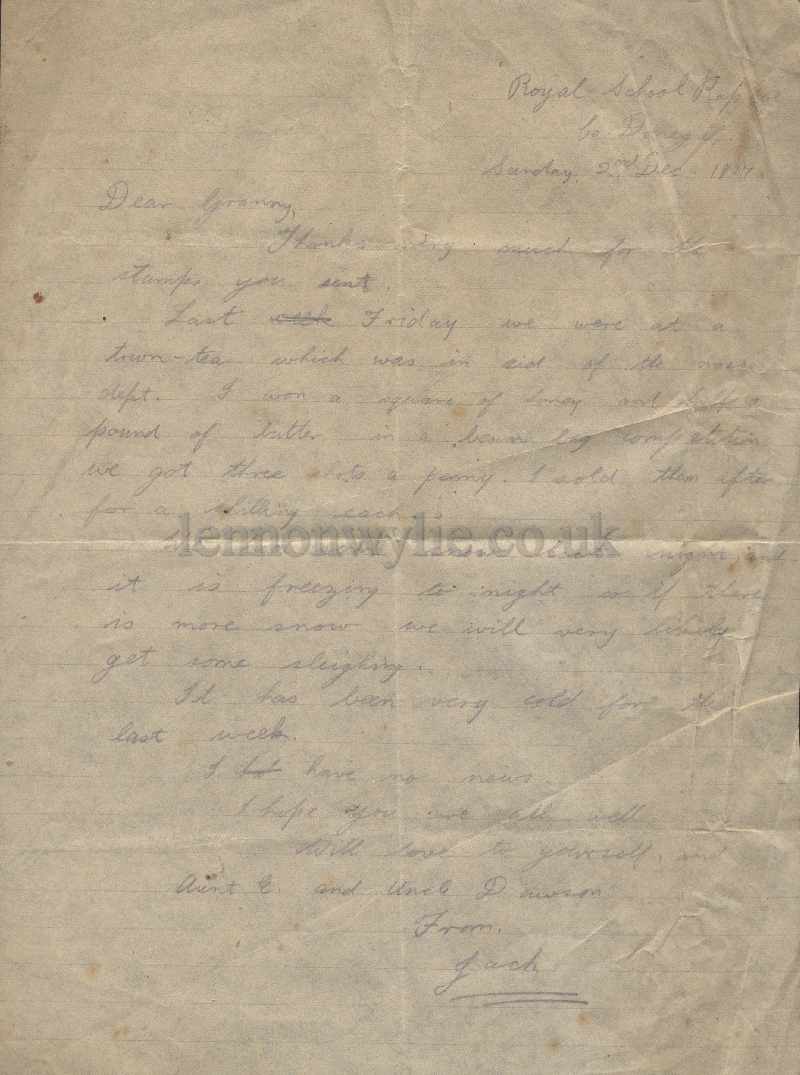 Royal School Raphoe
Co Donegal.
Sunday 2nd Dec
Dear Granny,
Thanks very much for the
stamps you sent.
Last week Friday we were at a
town-tea which was in aid of the
dept. I won a square of honey and half a
pound of butter in a bean bag competition
we got three shots a penny. I sold them after
for a shilling each.
lennonwylie.co.uk
snow last night and
it is freezing to night so if there
is more snow we will very likely
get some sleighing.
It has been very cold for the
last week.
I have no news.
I hope you are all well
With love to yourself, and
Aunt E. and Uncle Dawson
From.
Jack